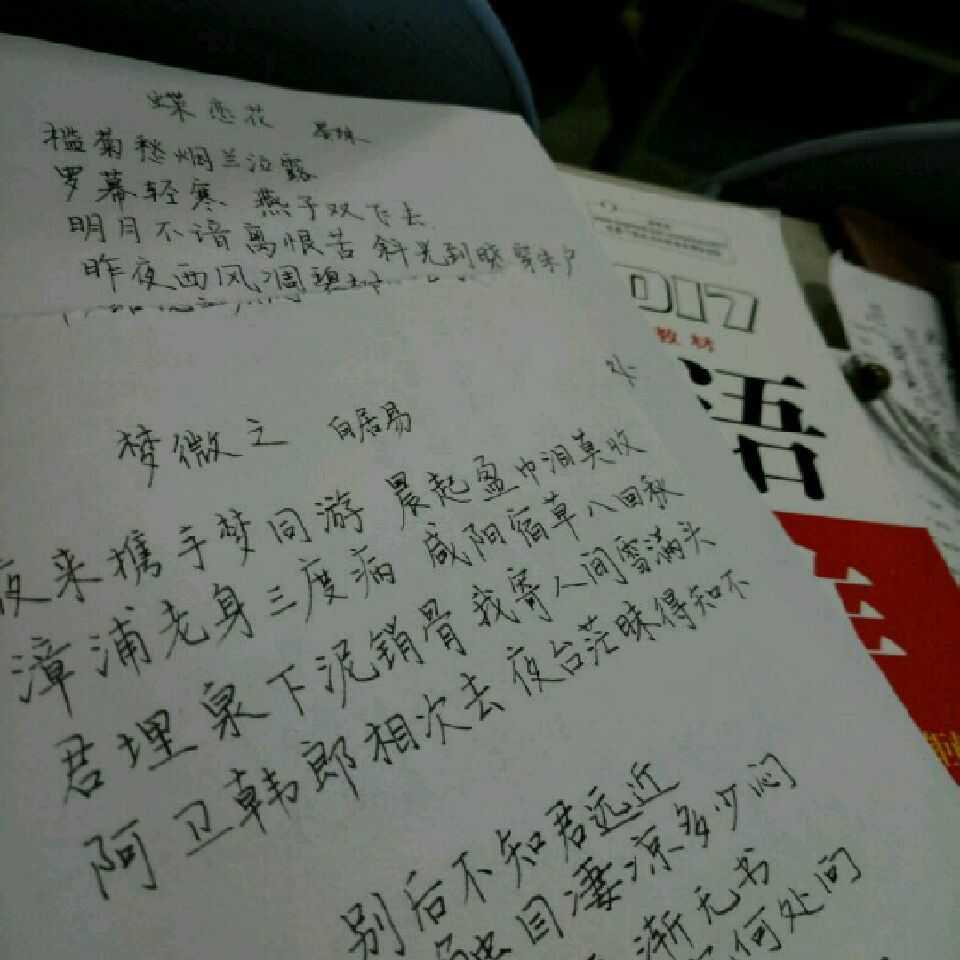 蝶恋花 晏殊
槛菊愁烟兰泣露
罗幕轻寒 燕子双飞去
明月不谙离恨苦 斜光到晓穿朱户
昨夜西风凋碧
梦微之 白居易
夜来携手梦同游 晨起盈巾泪莫收
漳浦老身三度病 咸阳宿草八回秋
君埋泉下泥销骨 我寄人间雪满头
阿卫韩郎相次去 夜台茫昧得知不
别后不知君远近
触目凄凉多少闷
渐无书
何处问
2017
教材
语